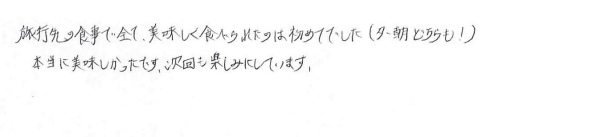 旅行先の食事で全て、美味しく食べられたのは初めてでした（夕・朝どちらも！）
本当に美味しかったです。次回も楽しみにしています。